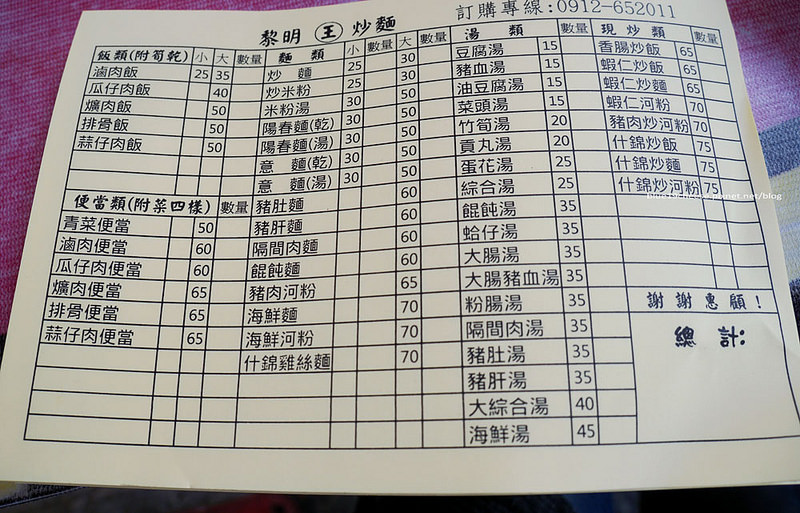 訂購專線:0912-652011
黎明 王 炒麵
飯類(附筍乾) 小 大 數量
滷肉飯 25 35
瓜仔肉飯 40
爌肉飯 50
排骨飯 50
蒜仔肉飯 50
便當類(附菜四樣) 數量
青菜便當 50
滷肉便當 60
瓜仔肉便當 60
爌肉便當 65
排骨便當 65
蒜仔肉便當 65
麵 類 小 數量 大 數量
炒 麵 25 30
炒米粉 25 30
米粉湯 30 50
陽春麵(乾) 30 50
陽春麵(湯) 30 50
意 麵(乾) 30 50
意 麵(湯) 30 50
豬肚麵 60
豬肝麵 60
隔間肉麵 60
餛飩麵 60
豬肉河粉 65
海鮮麵 70
海鮮河粉 70
什錦雞絲麵 70
湯 類 數量
豆腐湯 15
豬血湯 15
油豆腐湯 15
菜頭湯 15
竹筍湯 20
貢丸湯 20
蛋花湯 25
綜合湯 25
餛飩湯 35
蛤仔湯 35
大腸湯 35
大腸豬血湯 35
粉腸湯 35
隔間肉湯 35
豬肚湯 35
豬肝湯 35
大綜合湯 40
海鮮湯 45
現 炒 類 數量
香腸炒飯 65
蝦仁炒飯 65
蝦仁炒麵 65
蝦仁河粉 70
豬肉炒河粉 70
什錦炒飯 75
什錦炒麵 75
什錦炒河粉 75
謝謝惠顧！
總 計: